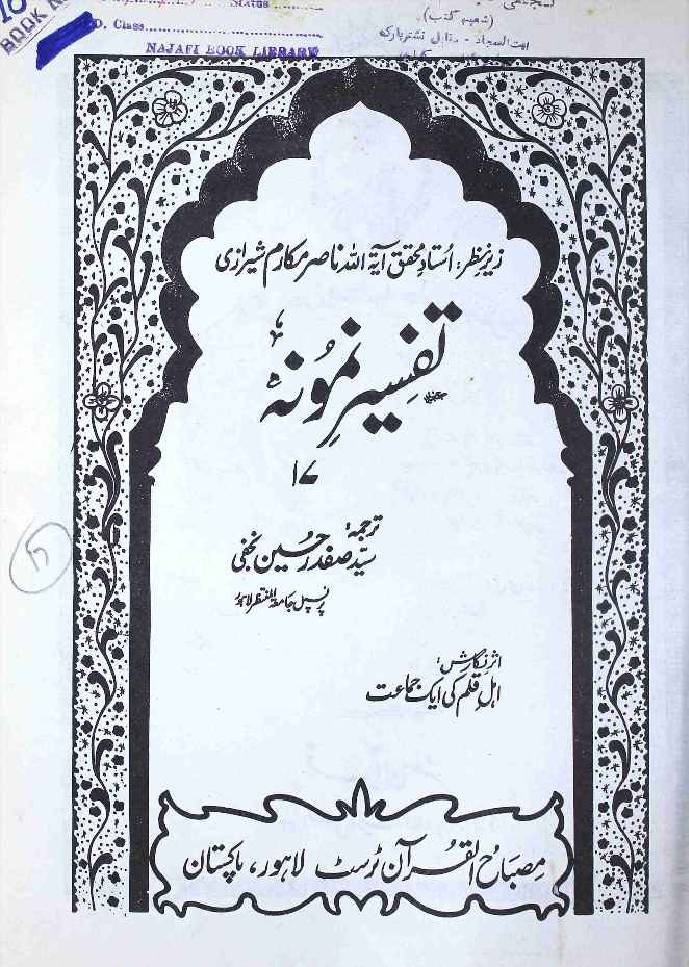 STATUS
D. Class
NAJAFI BOOK LIBRARY
BOOK
زیرِ نظر: اُستادِ محقق آیۃ اللہ ناصر مکارم شیرازی
تفسیرِ نمونہ
۱۷
ترجمہ:
سیّد صفدر حسین نجفی
پرنسپل جامعۃ المنتظر لاہور
اثرِ نگارش:
اہلِ قلم کی ایک جماعت
مصباحُ القُرآن ٹرسٹ لاہور، پاکستان